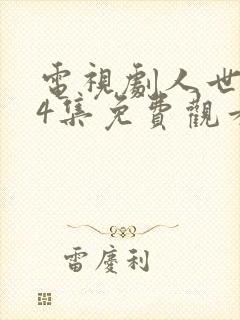 電視劇人世
4集免費觀
雷慶利